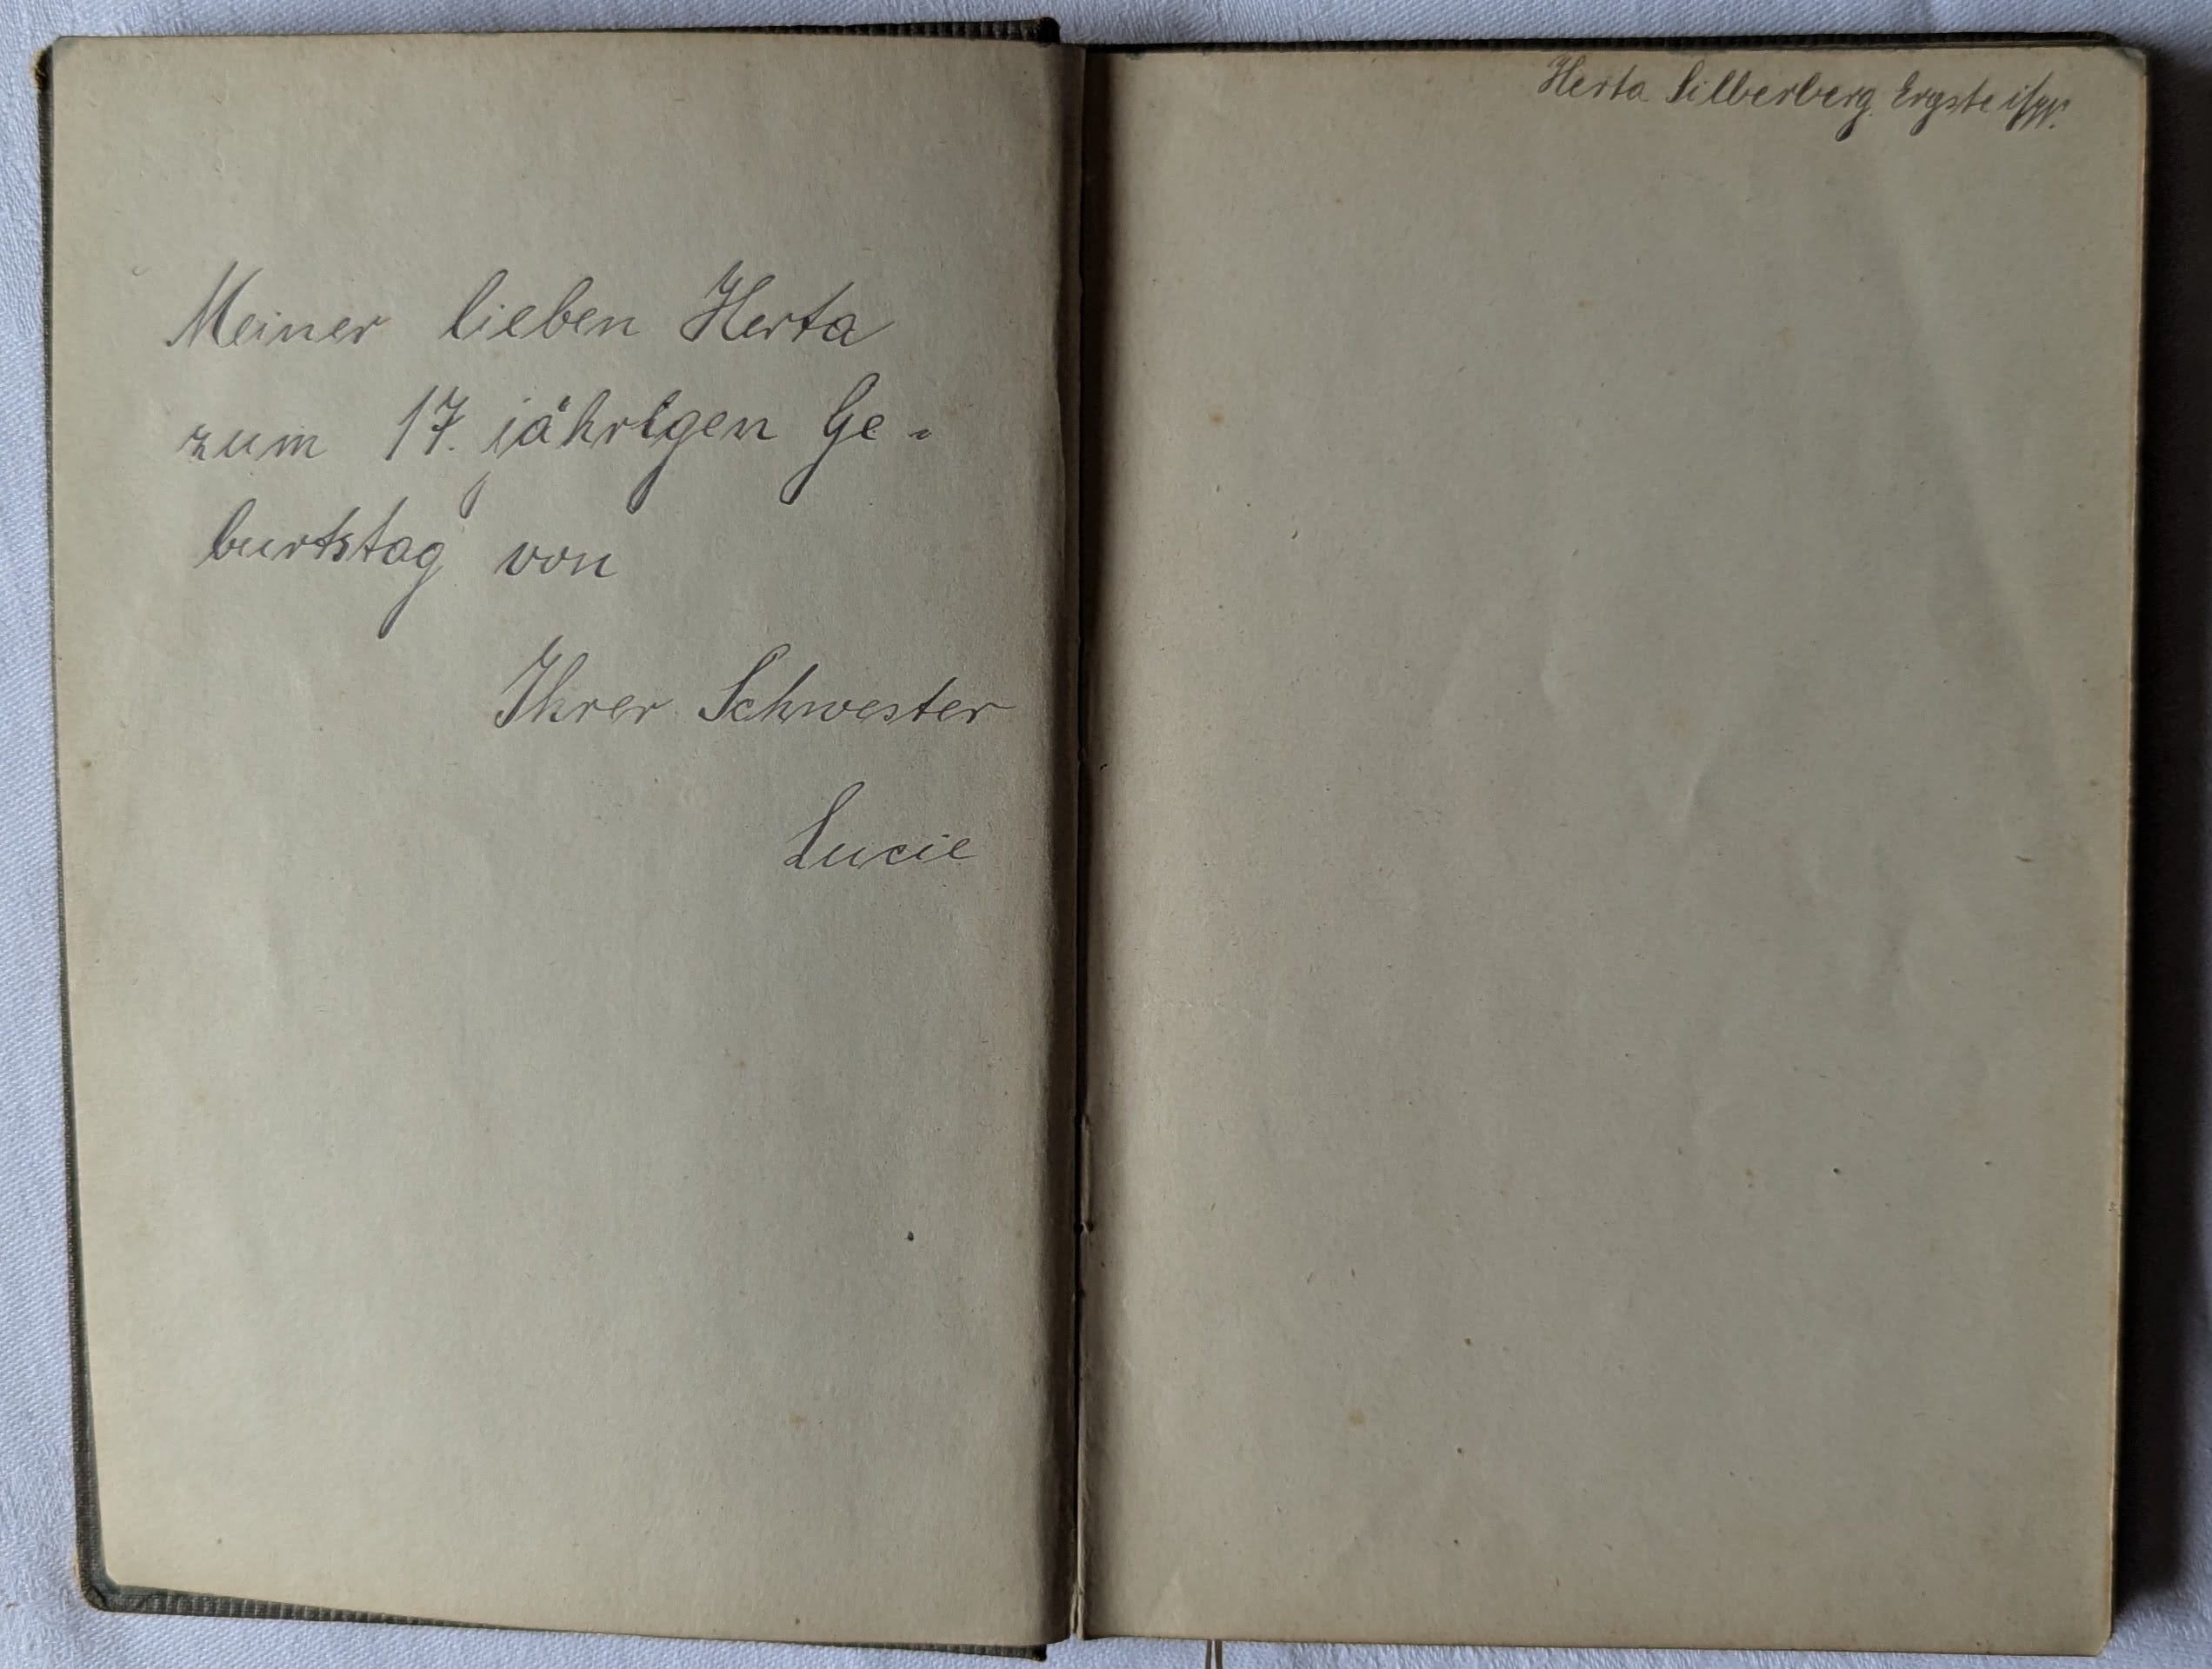 Meiner lieben Herta
zum 17. jährigen Ge-
burtstag von
Ihrer Schwester
Lucie
Herta Silberberg Ergste